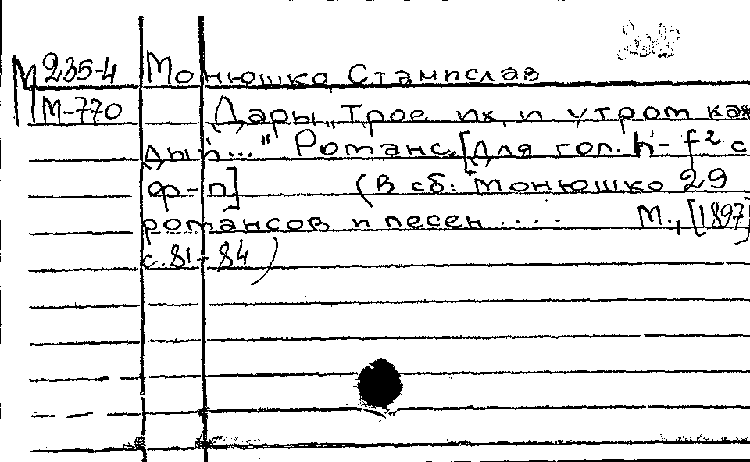 М 235-4 Монюшко, Станислав
М-770 Дары „Трое их, и утром каж
дый..." Романс. [Для гол. h - f² с
ф-п] (В сб: Монюшко 29
романсов и песен .... М., [1897]
с. 81 - 84)